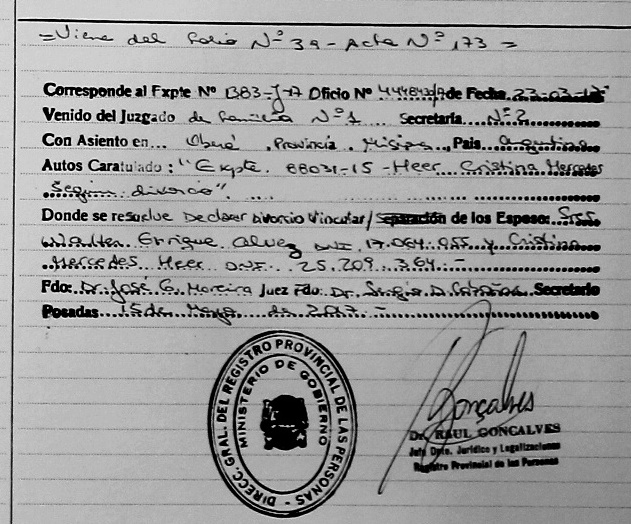 =Viene del Folio Nº 39 - Acta Nº 173 =
Corresponde al Expte Nº 1383-J-17 Oficio Nº de Fecha 23-03-17
Venido del Juzgado de Familia Nº 1 Secretaría Nº 2
Con Asiento en Oberá, Provincia Misiones, Pais Argentina
Autos Caratulado: "Expte. 88031-15 - Meer Cristina Mercedes
divorcio"
Donde se resuelve Declarar Divorcio Vincular/Separación de los Esposos: Sres
Walter Enrique Alvez DNI 17.064.955 y Cristina
Mercedes Meer DNI. 25.209.364.-
Fdo: Dr. José G. Moreira Juez Fdo: Dr. Sergio D. Secretario
Posadas 15 de Mayo de 2017.-
DIRECC. GRAL. DEL REGISTRO PROVINCIAL DE LAS PERSONAS -
MINISTERIO DE GOBIERNO
Gonçalves
Dr. RAUL GONCALVES
Jefe Dpto. Jurídico y Legalizaciones
Registro Provincial de las Personas